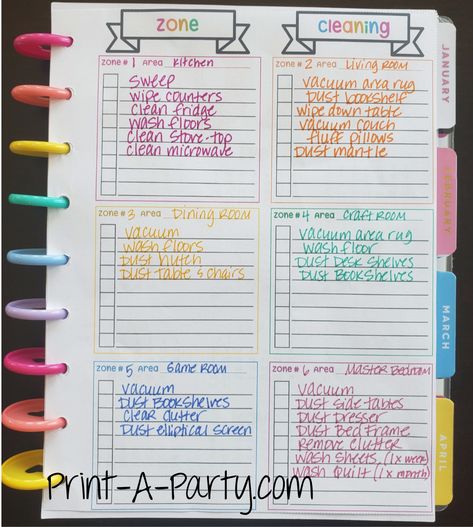 zone cleaning
zone # 1 Area Kitchen
sweep
wipe counters
clean fridge
wash floors
clean stove-top
clean microwave
zone # 2 Area Living Room
vacuum area rug
Dust bookshelf
wipe down table
vacuum couch
fluff pillows
Dust mantle
zone # 3 Area Dining Room
vacuum
wash floors
Dust hutch
Dust table & chairs
zone # 4 Area Craft Room
vacuum area rug
wash floor
Dust Desk shelves
Dust Bookshelves
zone # 5 Area Game Room
vacuum
Dust Bookshelves
clear clutter
Dust elliptical screen
zone # 6 Area Master Bedroom
vacuum
Dust side tables
Dust Dresser
Dust Bed Frame
Remove clutter
wash sheets (1x week)
wash quilt (1x month)
JANUARY
FEBRUARY
MARCH
APRIL
Print-A-Party.com